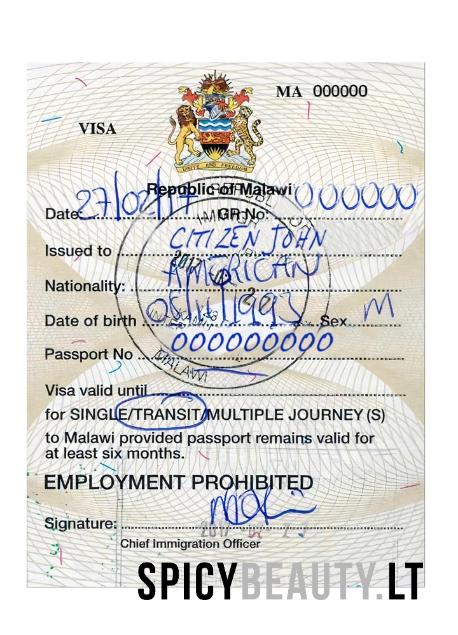 MA 000000
VISA
UNITY AND FREEDOM
Republic of Malawi
Date: 27/02/17 GR No: 000000
Issued to CITIZEN JOHN
Nationality: AMERICAN
Date of birth Sex M
Passport No 000000000
MALAWI
Visa valid until
for SINGLE/TRANSIT/MULTIPLE JOURNEY (S)
to Malawi provided passport remains valid for
at least six months.
EMPLOYMENT PROHIBITED
Signature:
Chief Immigration Officer
SPICYBEAUTY.LT